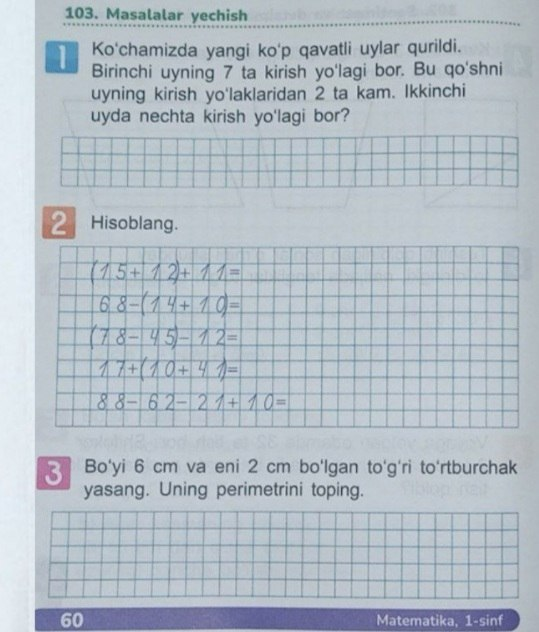 103. Masalalar yechish
1
Ko'chamizda yangi ko'p qavatli uylar qurildi.
Birinchi uyning 7 ta kirish yo'lagi bor. Bu qo'shni
uyning kirish yo'laklaridan 2 ta kam. Ikkinchi
uyda nechta kirish yo'lagi bor?
2 Hisoblang.
(15+12)+11=
68-(14+10)=
(78-45)-12=
17+(10+41)=
88-62-21+10=
3
Bo'yi 6 cm va eni 2 cm bo'lgan to'g'ri to'rtburchak
yasang. Uning perimetrini toping.
60 Matematika, 1-sinf